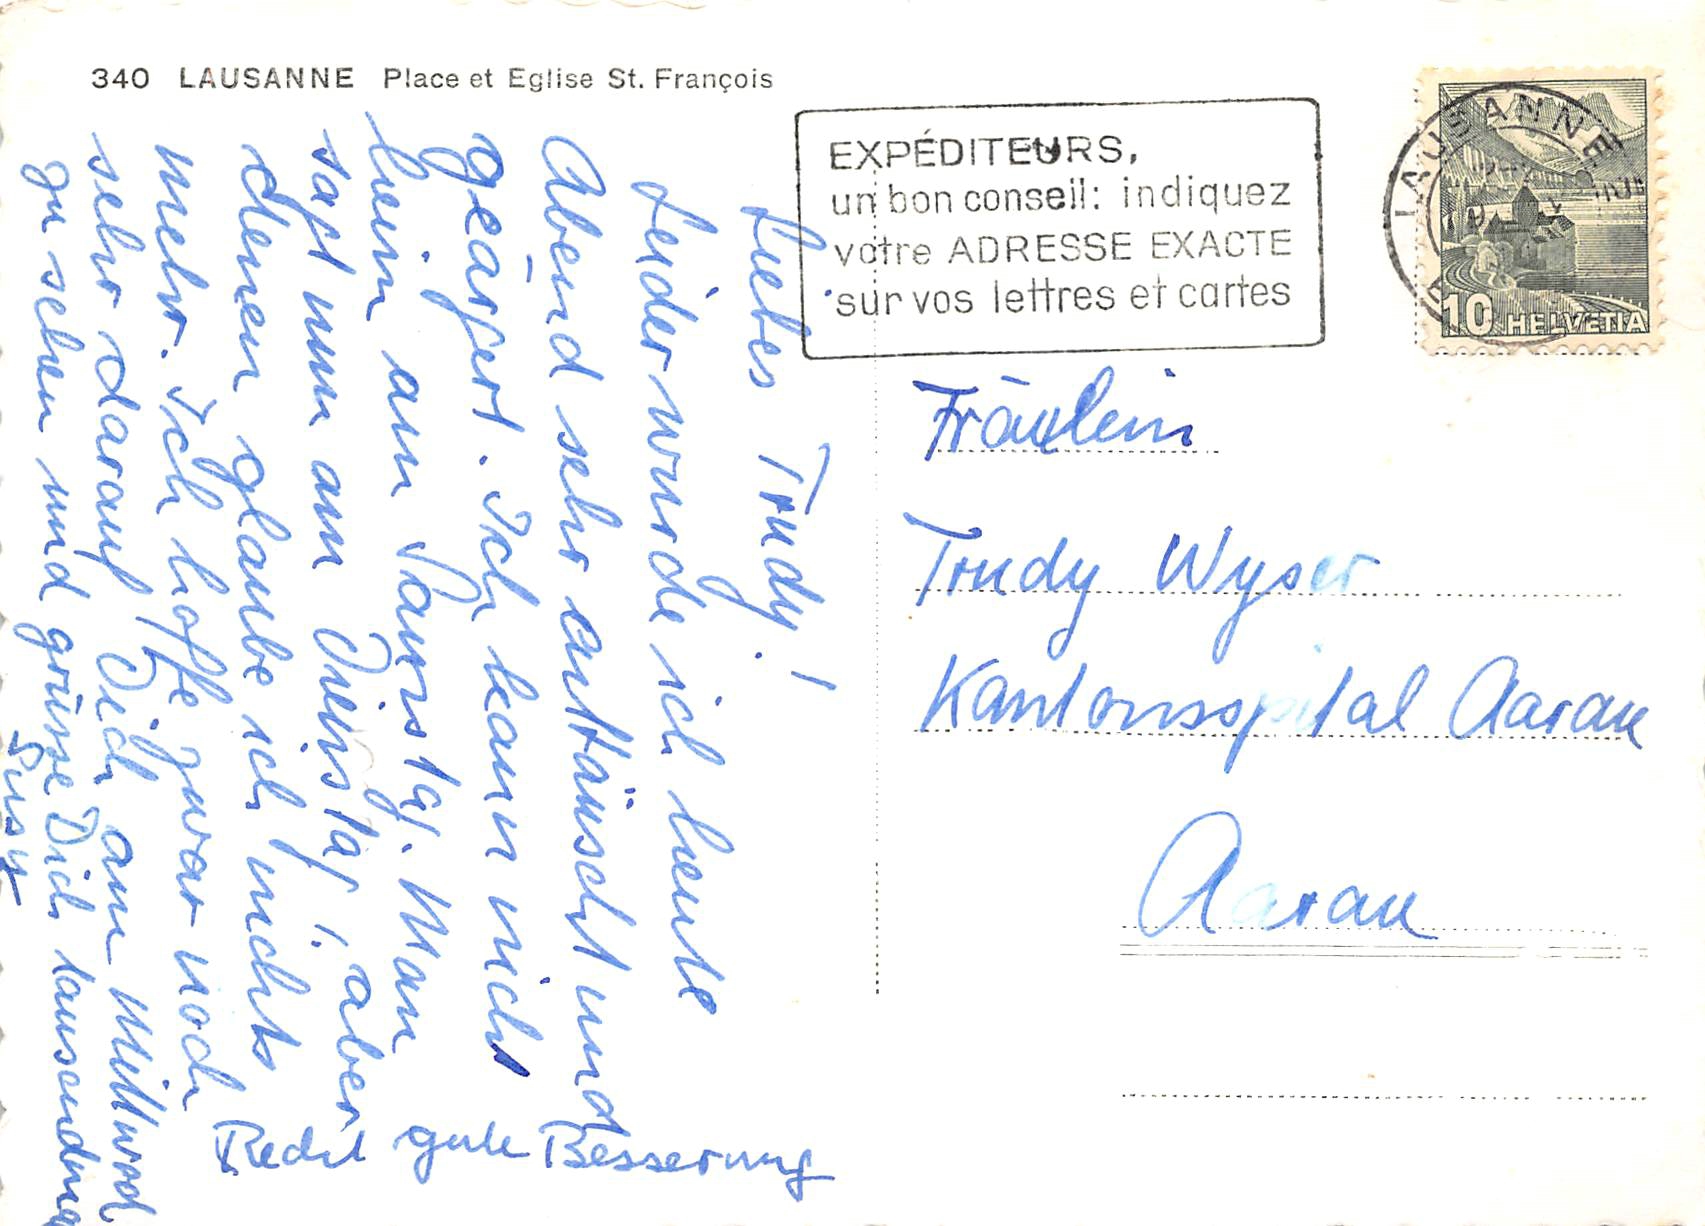 340 LAUSANNE Place et Eglise St. François
EXPÉDITEURS,
un bon conseil: indiquez
votre ADRESSE EXACTE
sur vos lettres et cartes
LAUSANNE
10 HELVETIA
Liebes Trudy!
Leider wurde ich heute
Abend sehr enttäuscht und
geärgert. Ich kann nicht
heim am Samstag. Man
sagt nun am Dienstag!, aber
denen glaube ich nichts
mehr. Ich hoffe zwar noch
sehr darauf Dich am Mittwoch
zu sehen und grüsse Dich tausendmal
Susy
Recht gute Besserung
Fräulein
Trudy Wyser
Kantonsspital Aarau
Aarau